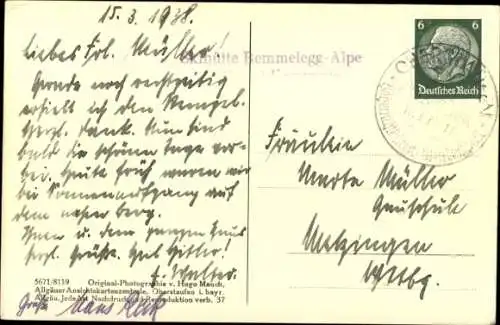 15.3.1938.
Liebes Frl. Müller!
Gerade noch rechtzeitig
erhielt ich den Stempel.
Herzl. Dank. Nun sind
bald die schönen Tage vor-
bei. Heute früh waren wir
bei Sonnenaufgang auf
dem nahen Berg.
Ihnen u. dem ganzen Haus
herzl. Grüße. Heil Hitler!
Skihütte Remmelegg-Alpe
6
Deutsches Reich
Fräulein
Marta Müller
Metzingen
Wttbg.
5671/8119 Original-Photographie v. Hugo Mauch,
Allgäuer Ansichtskartenzentrale, Oberstaufen i. bayr.
Allgäu. Jede Art Nachdruck und Reproduktion verb. 37
Grüße Hans